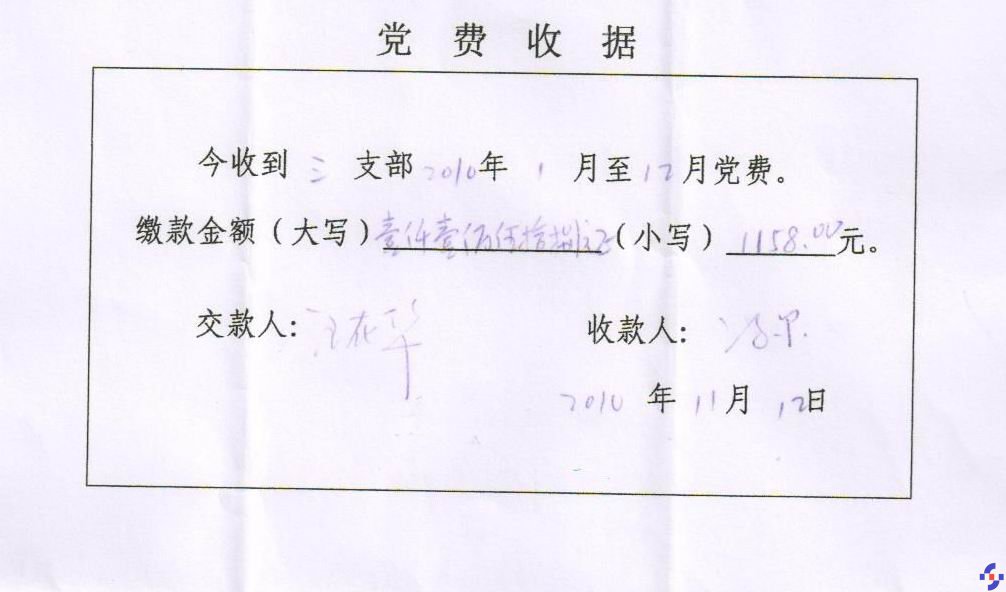 党费收据
今收到 三 支部 2010年 1 月至 12月党费。
缴款金额（大写）壹仟壹佰伍拾捌元正（小写）1158.00元。
交款人：汪在华 收款人：
2010 年 11月 12日